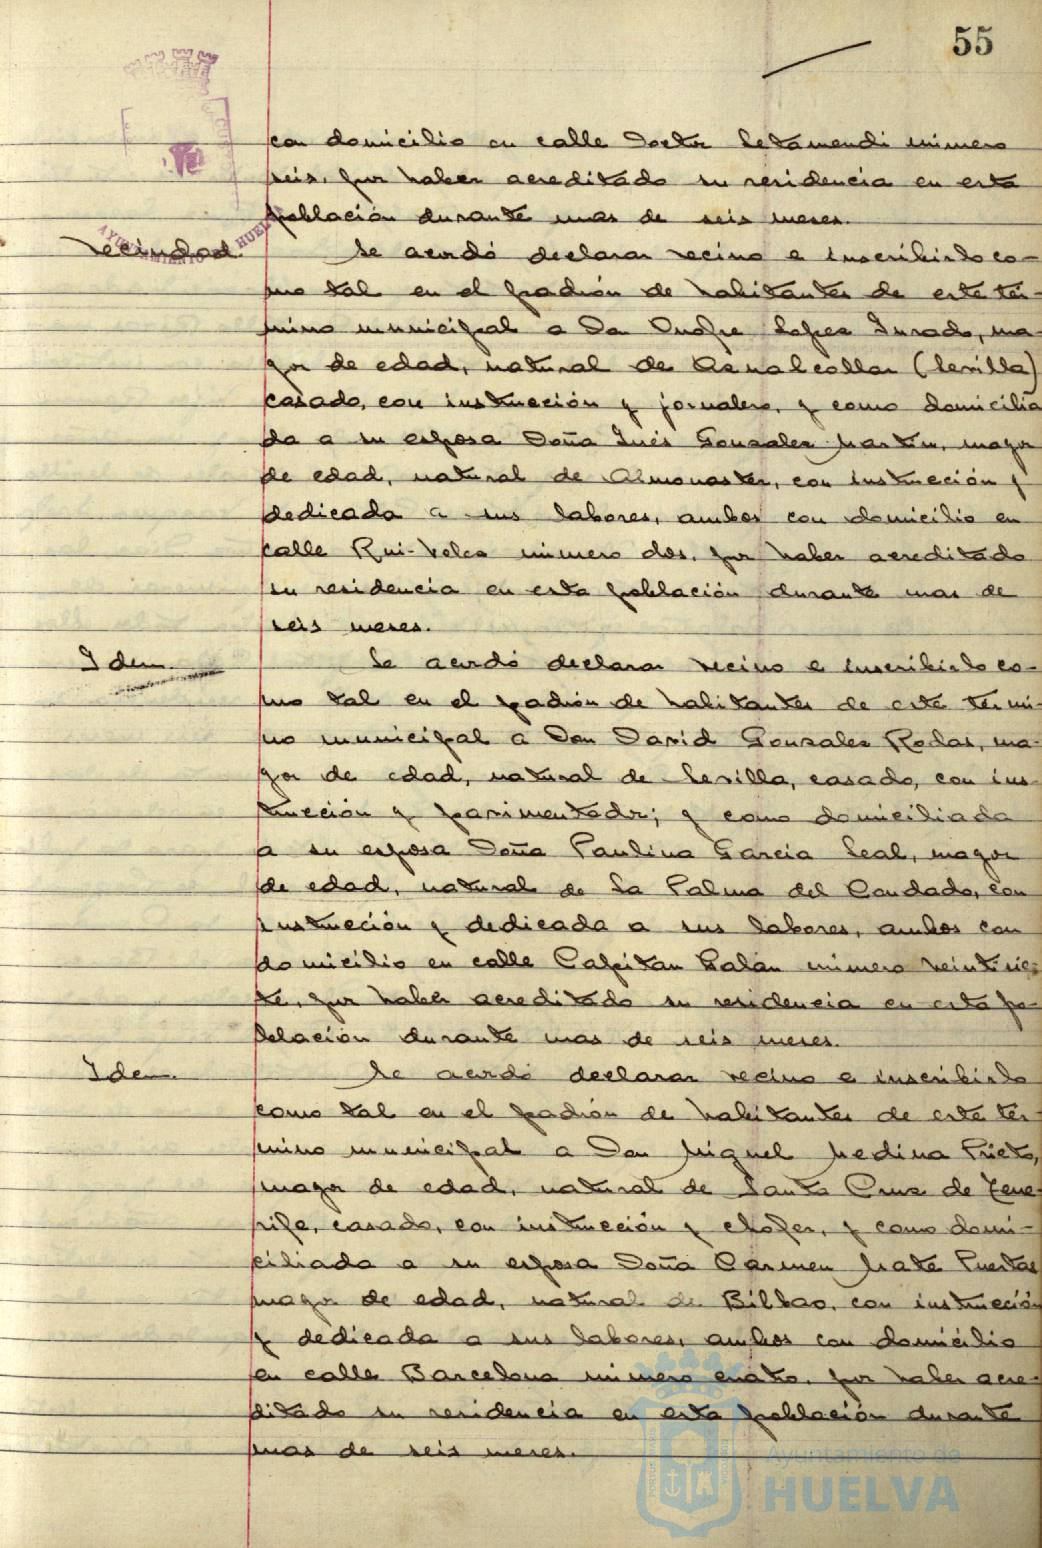 55
con domicilio en calle Doctor Letamendi número
seis, por haber acreditado su residencia en esta
población durante mas de seis meses.
Vecindad.
Se acordó declarar vecino e inscribirlo co-
mo tal en el padrón de habitantes de este tér-
mino municipal a Don Onofre Lopez Jurado, ma-
yor de edad, natural de Aznalcollar (Sevilla)
casado, con instrucción y jornalero, y como domicilia
da a su esposa Doña Inés Gonzalez Martin, mayor
de edad, natural de Almonaster, con instrucción y
dedicada a sus labores, ambos con domicilio en
calle Rui-Velez número dos, por haber acreditado
su residencia en esta población durante mas de
seis meses.
Idem.
Se acordó declarar vecino e inscribirlo co-
mo tal en el padrón de habitantes de este térmi-
no municipal a Don David Gonzalez Rodas, ma-
yor de edad, natural de Sevilla, casado, con ins-
trucción y pavimentador; y como domiciliada
a su esposa Doña Paulina García Leal, mayor
de edad, natural de La Palma del Condado, con
instrucción y dedicada a sus labores, ambos con
domicilio en calle Capitan Galán número veintisie-
te, por haber acreditado su residencia en esta po-
blación durante mas de seis meses.
Idem.
Se acordó declarar vecino e inscribirlo
como tal en el padrón de habitantes de este tér-
mino municipal a Don Miguel Medina Prieto,
mayor de edad, natural de Santa Cruz de Tene-
rife, casado, con instrucción y chofer, y como domi-
ciliada a su esposa Doña Carmen Mate Puertas
mayor de edad, natural de Bilbao, con instrucción
y dedicada a sus labores, ambos con domicilio
en calle Barcelona número cuatro, por haber acre-
ditado su residencia en esta población durante
mas de seis meses.
Ayuntamiento de
HUELVA